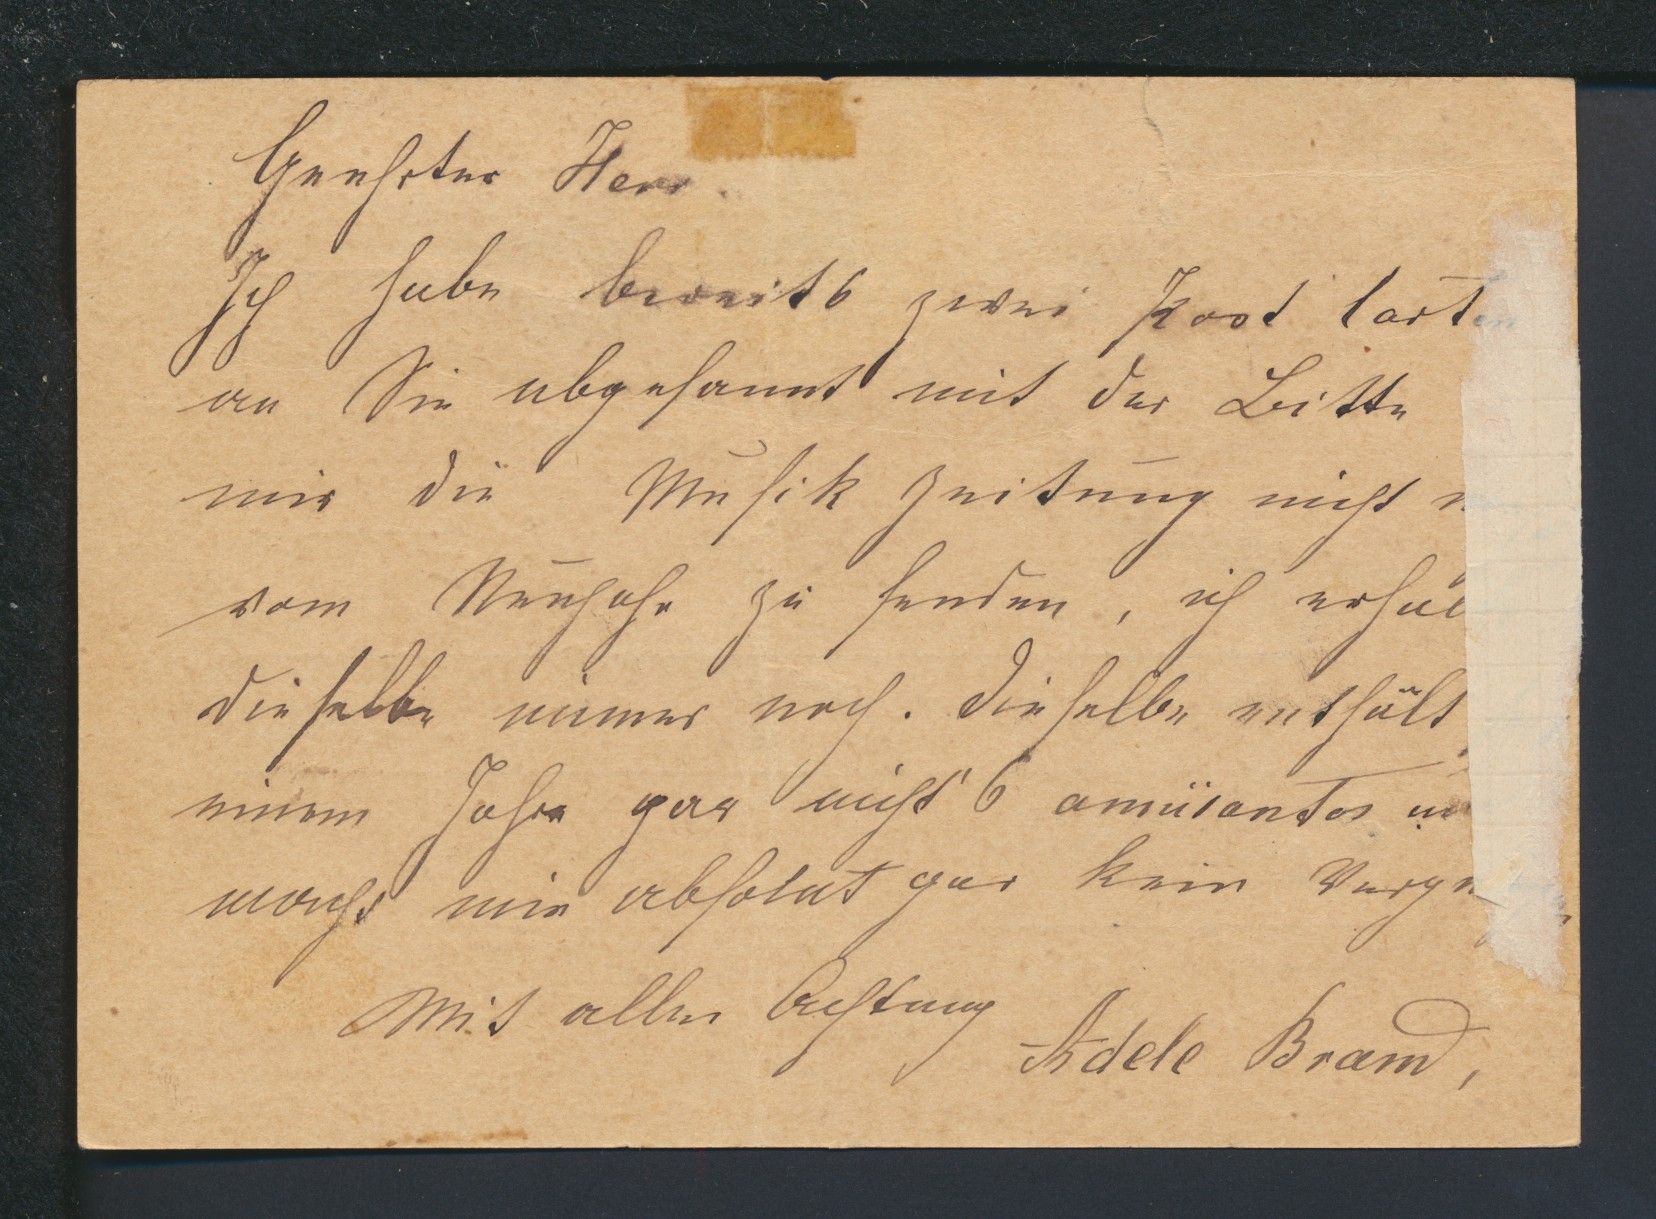 Geehrter Herr.
Ich habe bereits zwei Post karten
an Sie abgesannt mit der Bitte
mir die Musik Zeitung nicht
vom Neujahr zu senden, ich erhal
dieselbe immer noch. Dieselbe enthält
einem Jahre gar nichts amüsantes
macht mir absolut gar kein Verg
Mit aller Achtung
Adele Brand,